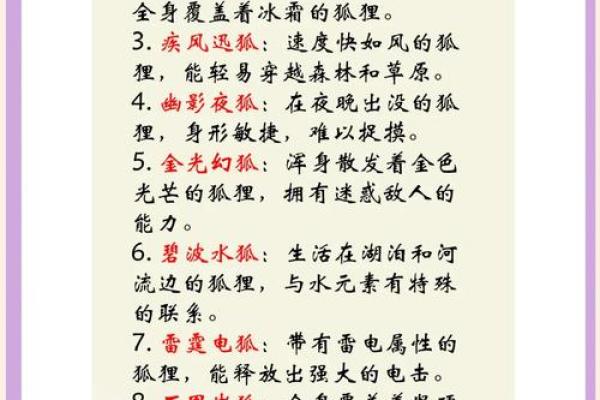 全身覆盖着冰霜的狐狸。
3. 疾风迅狐：速度快如风的狐
狸，能轻易穿越森林和草原。
4. 幽影夜狐：在夜晚出没的狐
狸，身形敏捷，难以捉摸。
5. 金光幻狐：浑身散发着金色
光芒的狐狸，拥有迷惑敌人的
能力。
6. 碧波水狐：生活在湖泊和河
流边的狐狸，与水元素有特殊
的联系。
7. 雷霆电狐：带有雷电属性的
狐狸，能释放出强大的电击。
8.